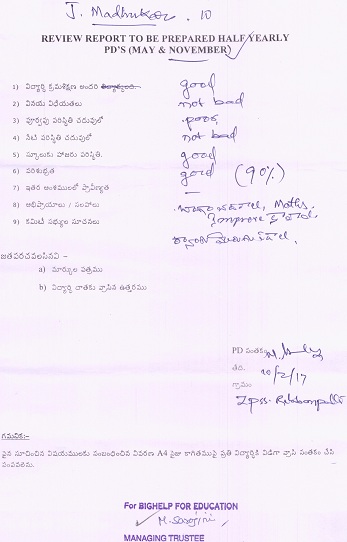 J. Madhukar. 10
REVIEW REPORT TO BE PREPARED HALF YEARLY
PD'S (MAY & NOVEMBER)
1) విద్యార్ధి క్రమశిక్షణ అందరి good
2) వినయ విధేయతలు not bad
3) పూర్వపు పరిస్థితి చదువులో poor
4) నేటి పరిస్థితి చదువులో not bad
5) స్కూలుకు హాజరు పరిస్థితి. good
6) పరిశుభ్రత good (90%)
7) ఇతర అంశములలో ప్రావీణ్యత –
8) అభిప్రాయాలు / సలహాలు Maths.
Improve
9) కమిటీ సభ్యుల సూచనలు
జతపరచవలసినవి -
a) మార్కుల పత్రము
b) విద్యార్ధి దాతకు వ్రాసిన ఉత్తరము
PD సంతకం
తేది. 10/2/17
గ్రామం
గమనిక:-
పైన సూచించిన విషయములకు సంబంధించిన వివరణ A4 సైజు కాగితముపై ప్రతి విద్యార్ధికి విడిగా వ్రాసి సంతకం చేసి
పంపవలెను.
For BIGHELP FOR EDUCATION
M. Sarojini
MANAGING TRUSTEE